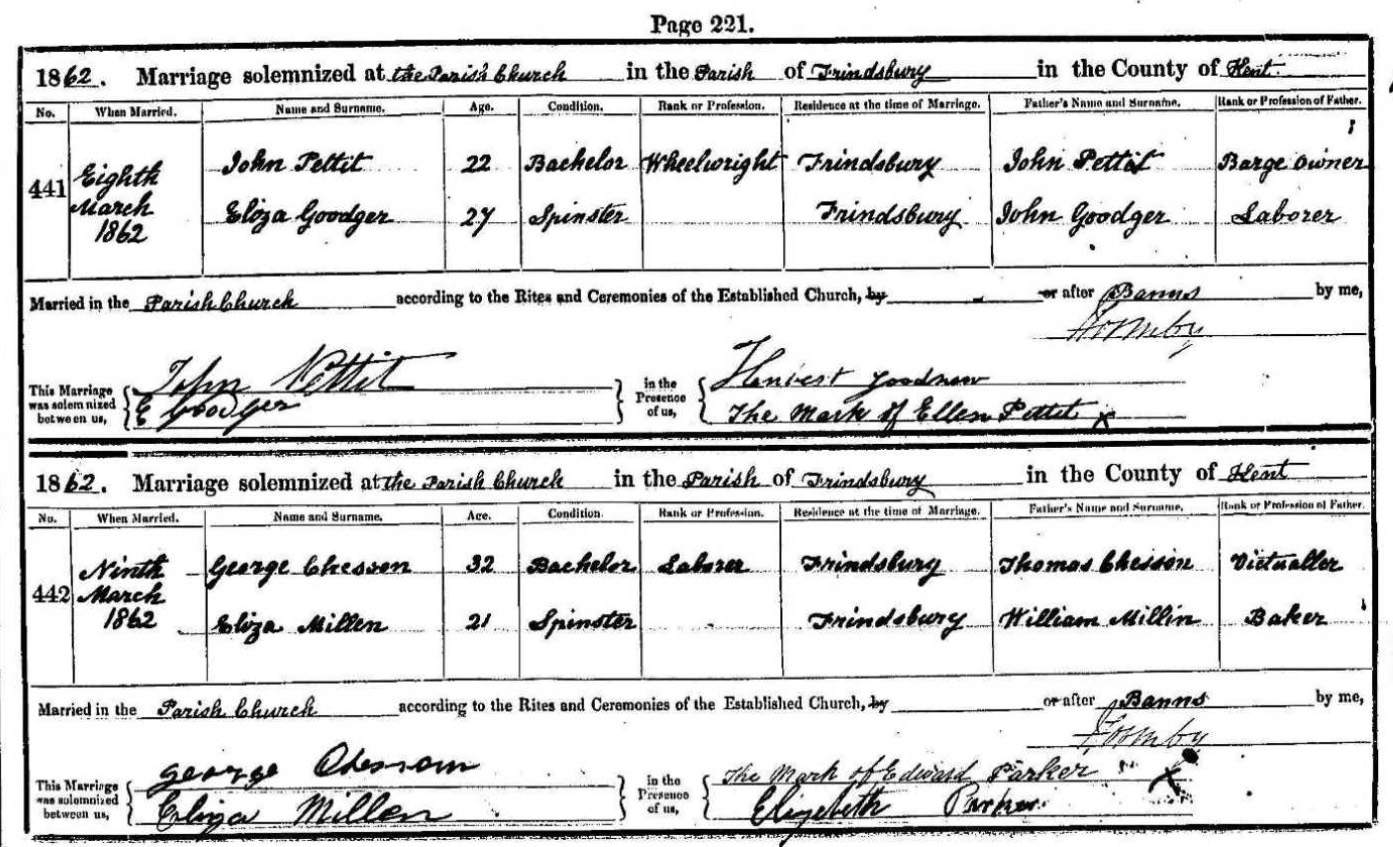 Page 221.
1862. Marriage solemnized at the Parish Church in the Parish of Frindsbury in the County of Kent.
No. When Married. Name and Surname. Age. Condition. Rank or Profession. Residence at the time of Marriage. Father's Name and Surname. Rank or Profession of Father.
441 Eighth March 1862 John Pettit 22 Bachelor Wheelwright Frindsbury John Pettit Barge Owner
Eliza Goodger 27 Spinster Frindsbury John Goodger Laborer
Married in the Parish Church according to the Rites and Ceremonies of the Established Church, by or after Banns by me,
Formby
This Marriage was solemnized between us, John Pettit in the Presence of us,
E Goodger The Mark of Ellen Pettit x
1862. Marriage solemnized at the Parish Church in the Parish of Frindsbury in the County of Kent
No. When Married. Name and Surname. Age. Condition. Rank or Profession. Residence at the time of Marriage. Father's Name and Surname. Rank or Profession of Father.
442 Ninth March 1862 George Chesson 32 Bachelor Laborer Frindsbury Thomas Chesson Victualler
Eliza Millen 21 Spinster Frindsbury William Millin Baker
Married in the Parish Church according to the Rites and Ceremonies of the Established Church, by or after Banns by me,
Formby
This Marriage was solemnized between us, George Chesson in the Presence of us, The Mark of Edward Parker X
Eliza Millen Elizebeth Parker